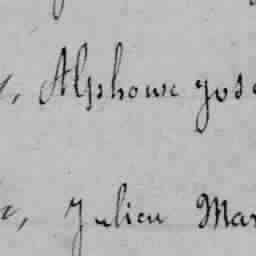 , Alphonse Jose
, Julien Mar